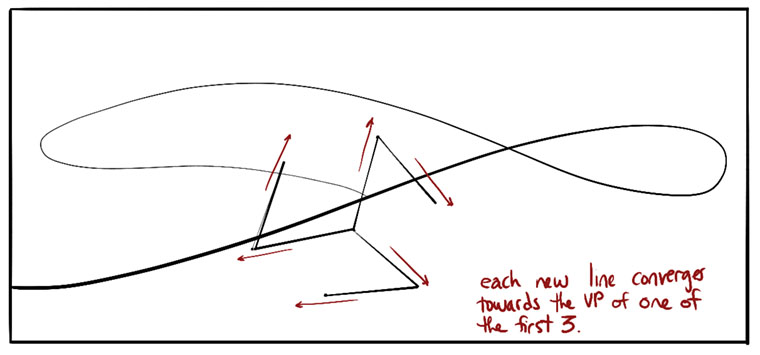 each new line converges
towards the VP of one of
the first 3.